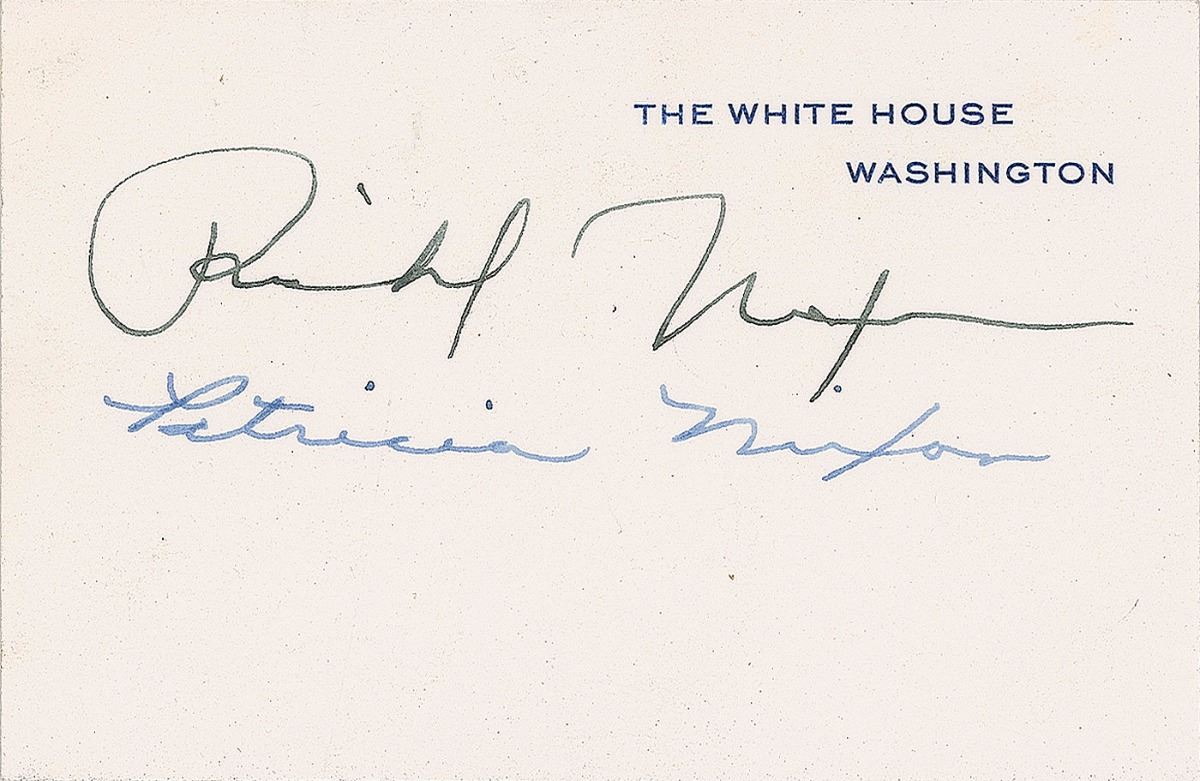 THE WHITE HOUSE
WASHINGTON
Richard Nixon
Patricia Nixon